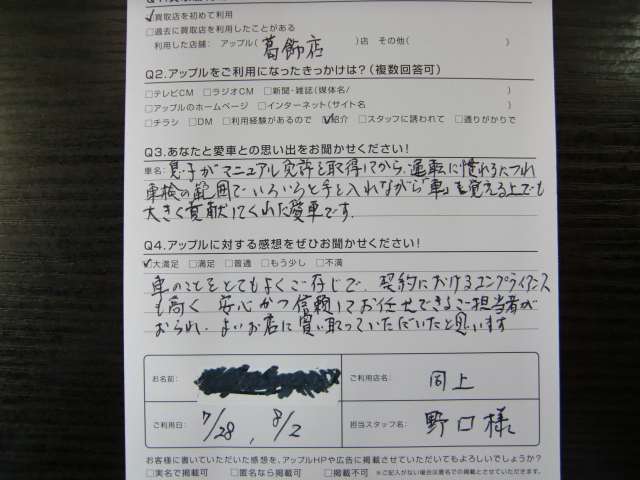 ☑買取店を初めて利用
□過去に買取店を利用したことがある
利用した店舗: アップル( 葛飾店 )店 その他( )
Q2.アップルをご利用になったきっかけは?(複数回答可)
□テレビCM □ラジオCM □新聞・雑誌(媒体名/ )
□アップルのホームページ □インターネット(サイト名 )
□チラシ □DM □利用経験があるので ☑紹介 □スタッフに誘われて □通りがかりで
Q3.あなたと愛車との思い出をお聞かせください!
車名: 息子がマニュアル免許を取得してから、運転に慣れるにつれ
車検の範囲でいろいろと手を入れながら「車」を覚える上でも
大きく貢献してくれた愛車です.
Q4.アップルに対する感想をぜひお聞かせください!
☑大満足 □満足 □普通 □もう少し □不満
車のことをとてもよくご存じで、契約におけるコンプライアンス
も高く 安心かつ信頼してお任せできるご担当者が
おられ、よいお店に買い取っていただいたと思います
お名前: ご利用店名: 同上
ご利用日: 7/28, 8/2 担当スタッフ名: 野口様
お客様に書いていただいた感想を、アップルHPや広告に掲載させていただいてもよろしいでしょうか?
□実名で掲載可 □匿名なら掲載可 □掲載不可 ※ご記入がない場合は匿名での掲載とさせていただきます。